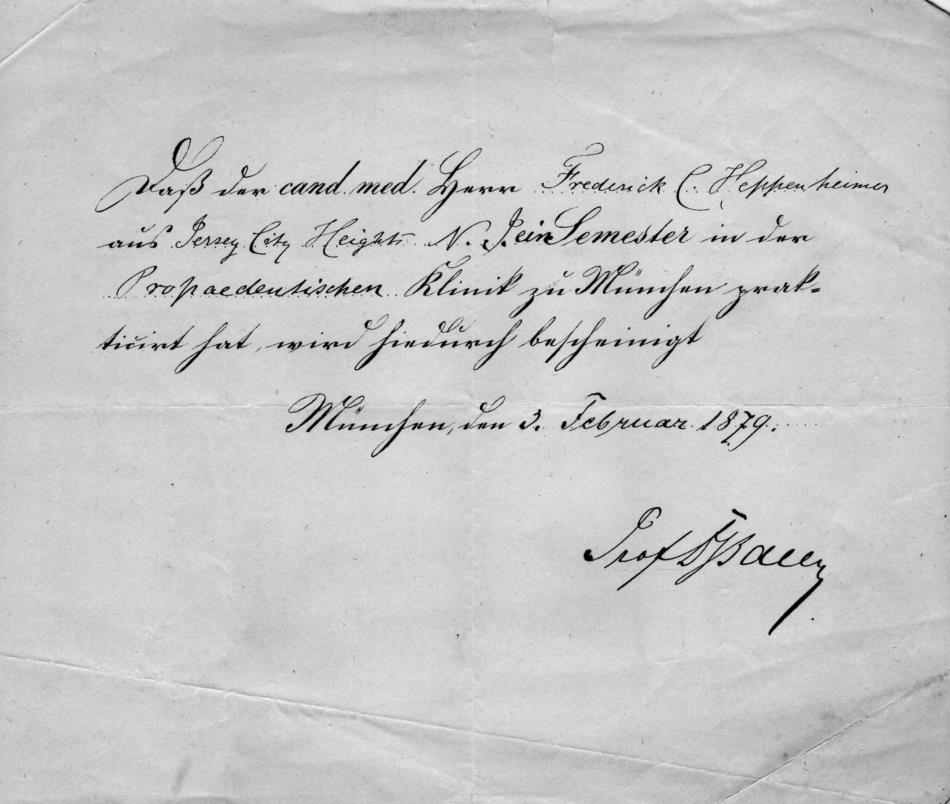 Daß der cand. med. Herr Frederick C. Heppenheimer
aus Jersey City Heights N. J. ein Semester in der
Propaedeutischen Klinik zu München prak-
ticirt hat, wird hiedurch bescheinigt
München, den 3. Februar 1879.
Prof Dr Bauer